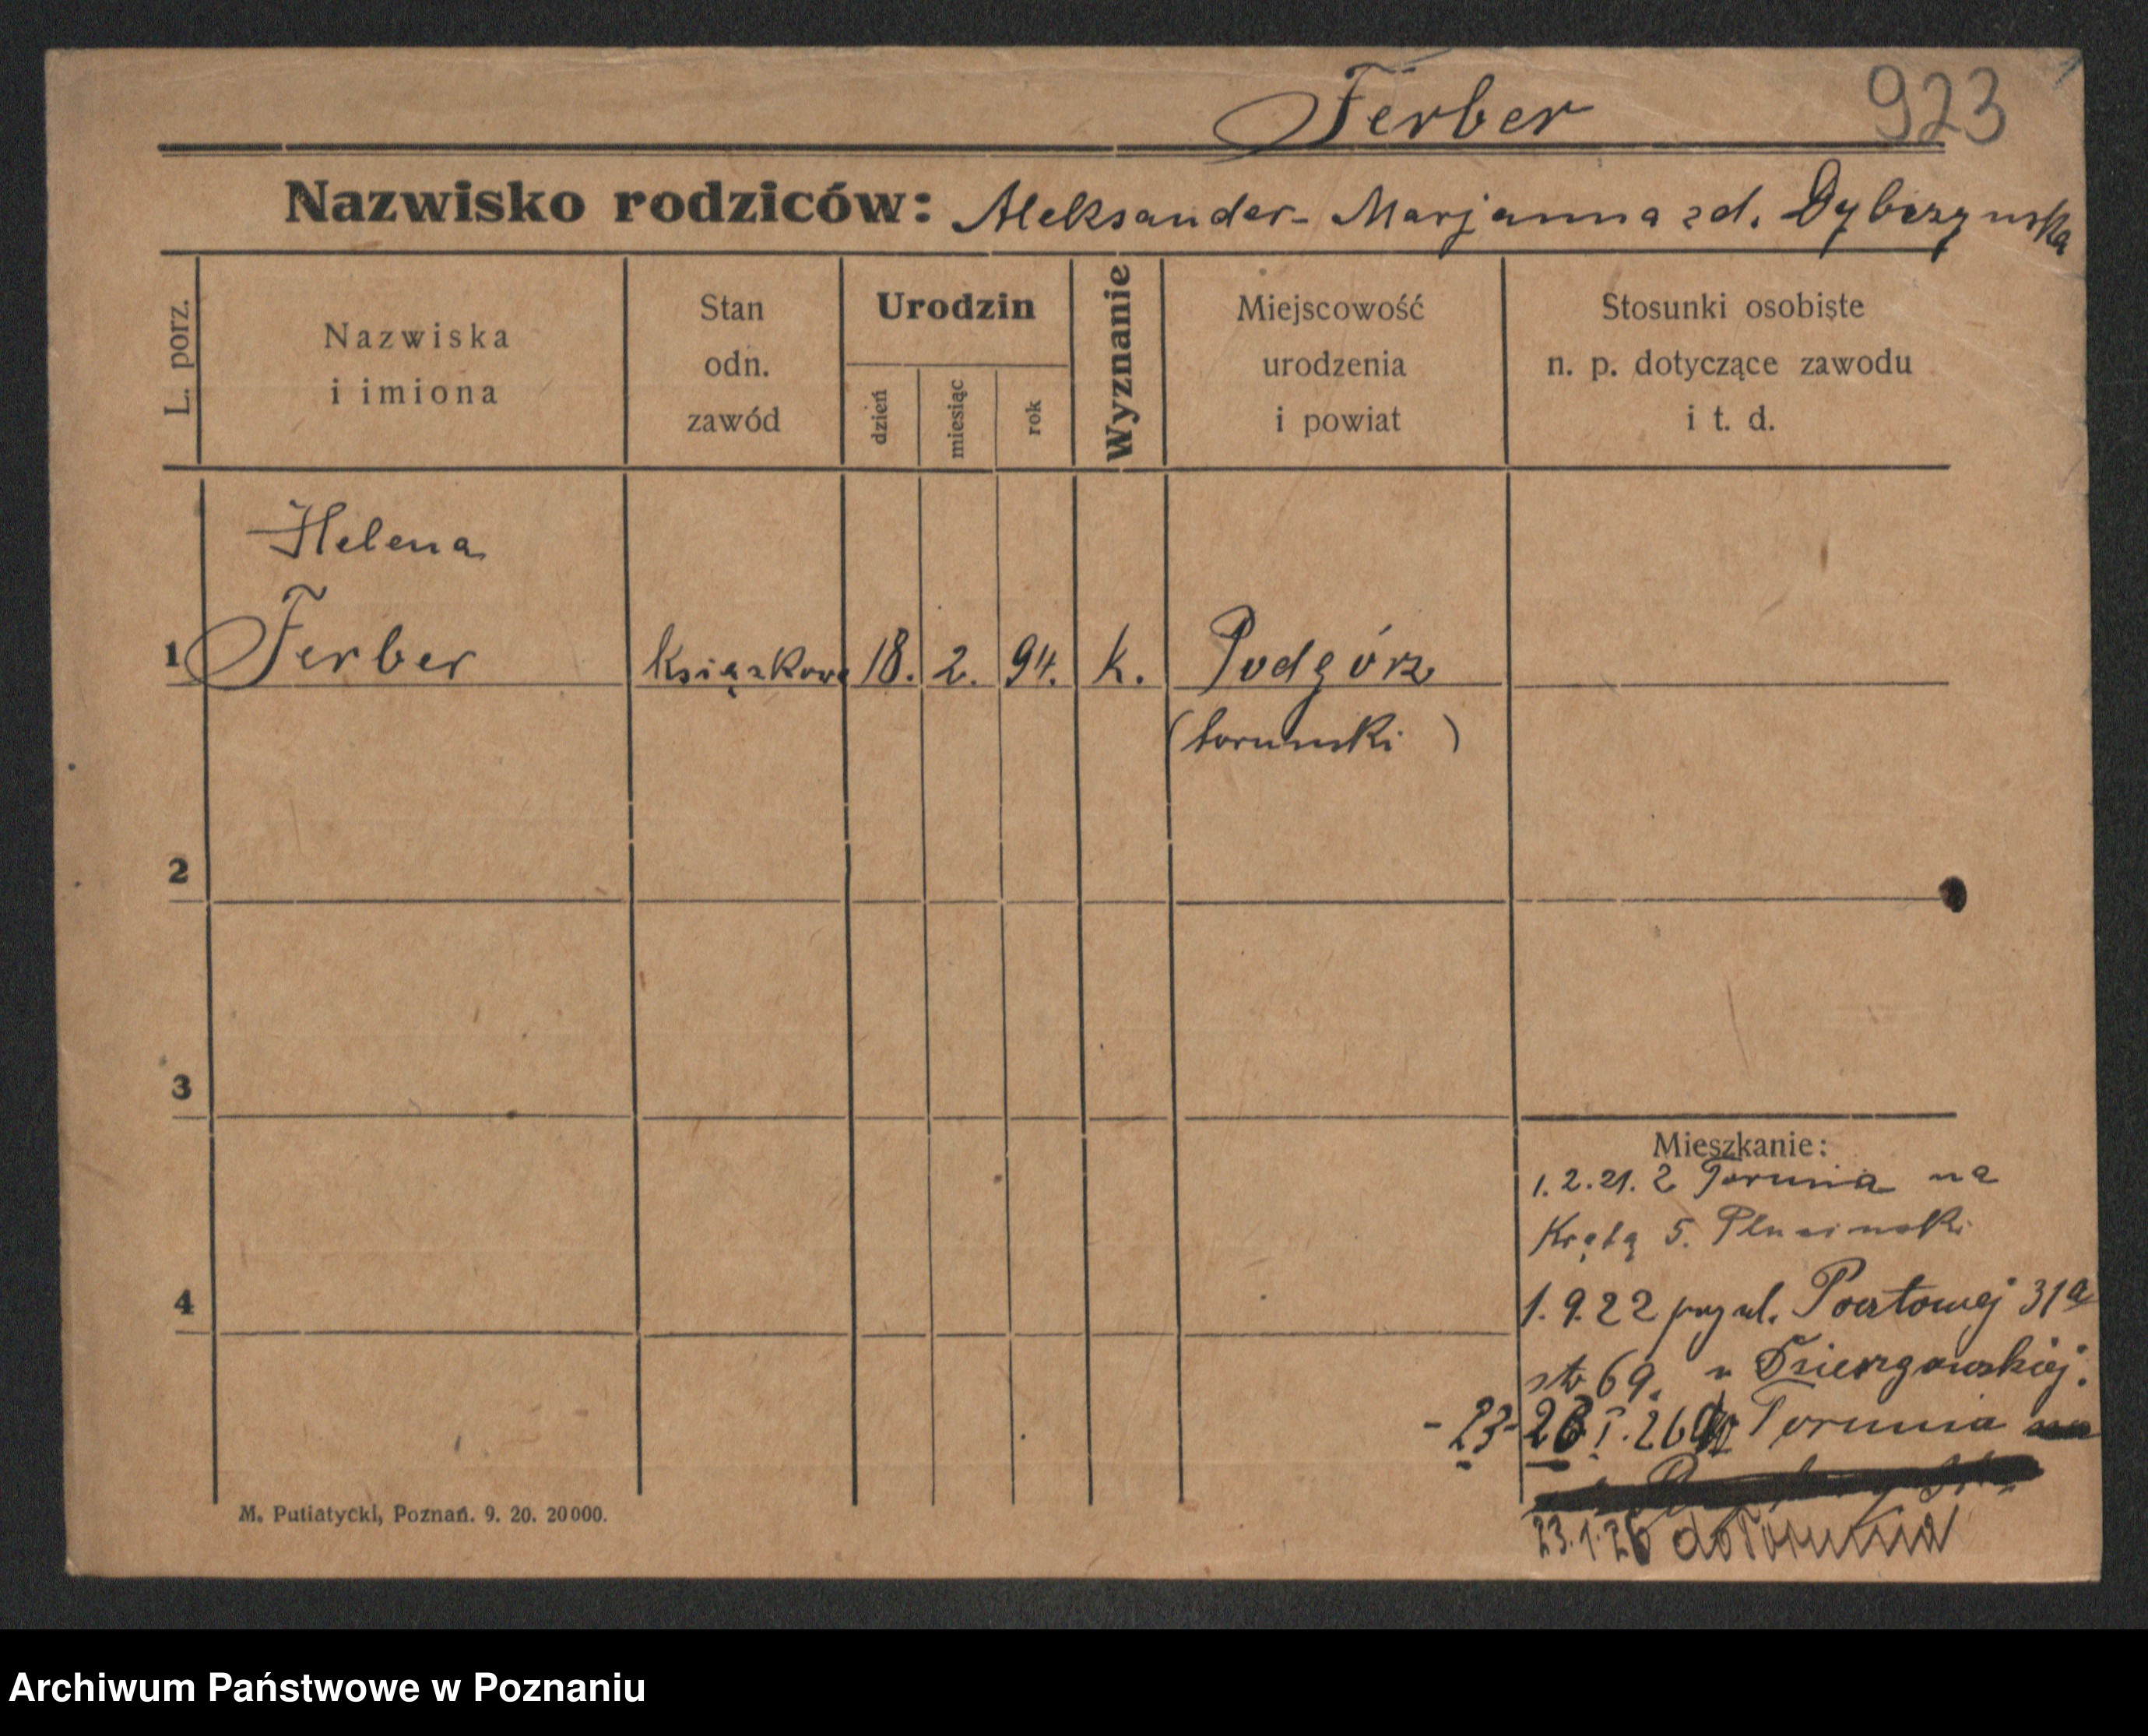 Ferber 923
Nazwisko rodziców: Aleksander - Marjanna zd. Dybczynska
L. porz.
Nazwiska
i imiona
Stan
odn.
zawód
Urodzin
dzień
miesiąc
rok
Wyznanie
Miejscowość
urodzenia
i powiat
Stosunki osobiste
n. p. dotyczące zawodu
i t. d.
Helena
1 Ferber książkowa 18. 2. 94. k. Podgórz
(toruński)
2
3
4
Mieszkanie:
1.2.21. z Torunia na
Krętą 5.
1.9.22 przy ul. Pocztowej 31a
69. u Dziergowskiej.
-23- I.26 do Torunia
23.1.26 do Torunia
M. Putiatycki, Poznań. 9. 20. 20000.
Archiwum Państwowe w Poznaniu